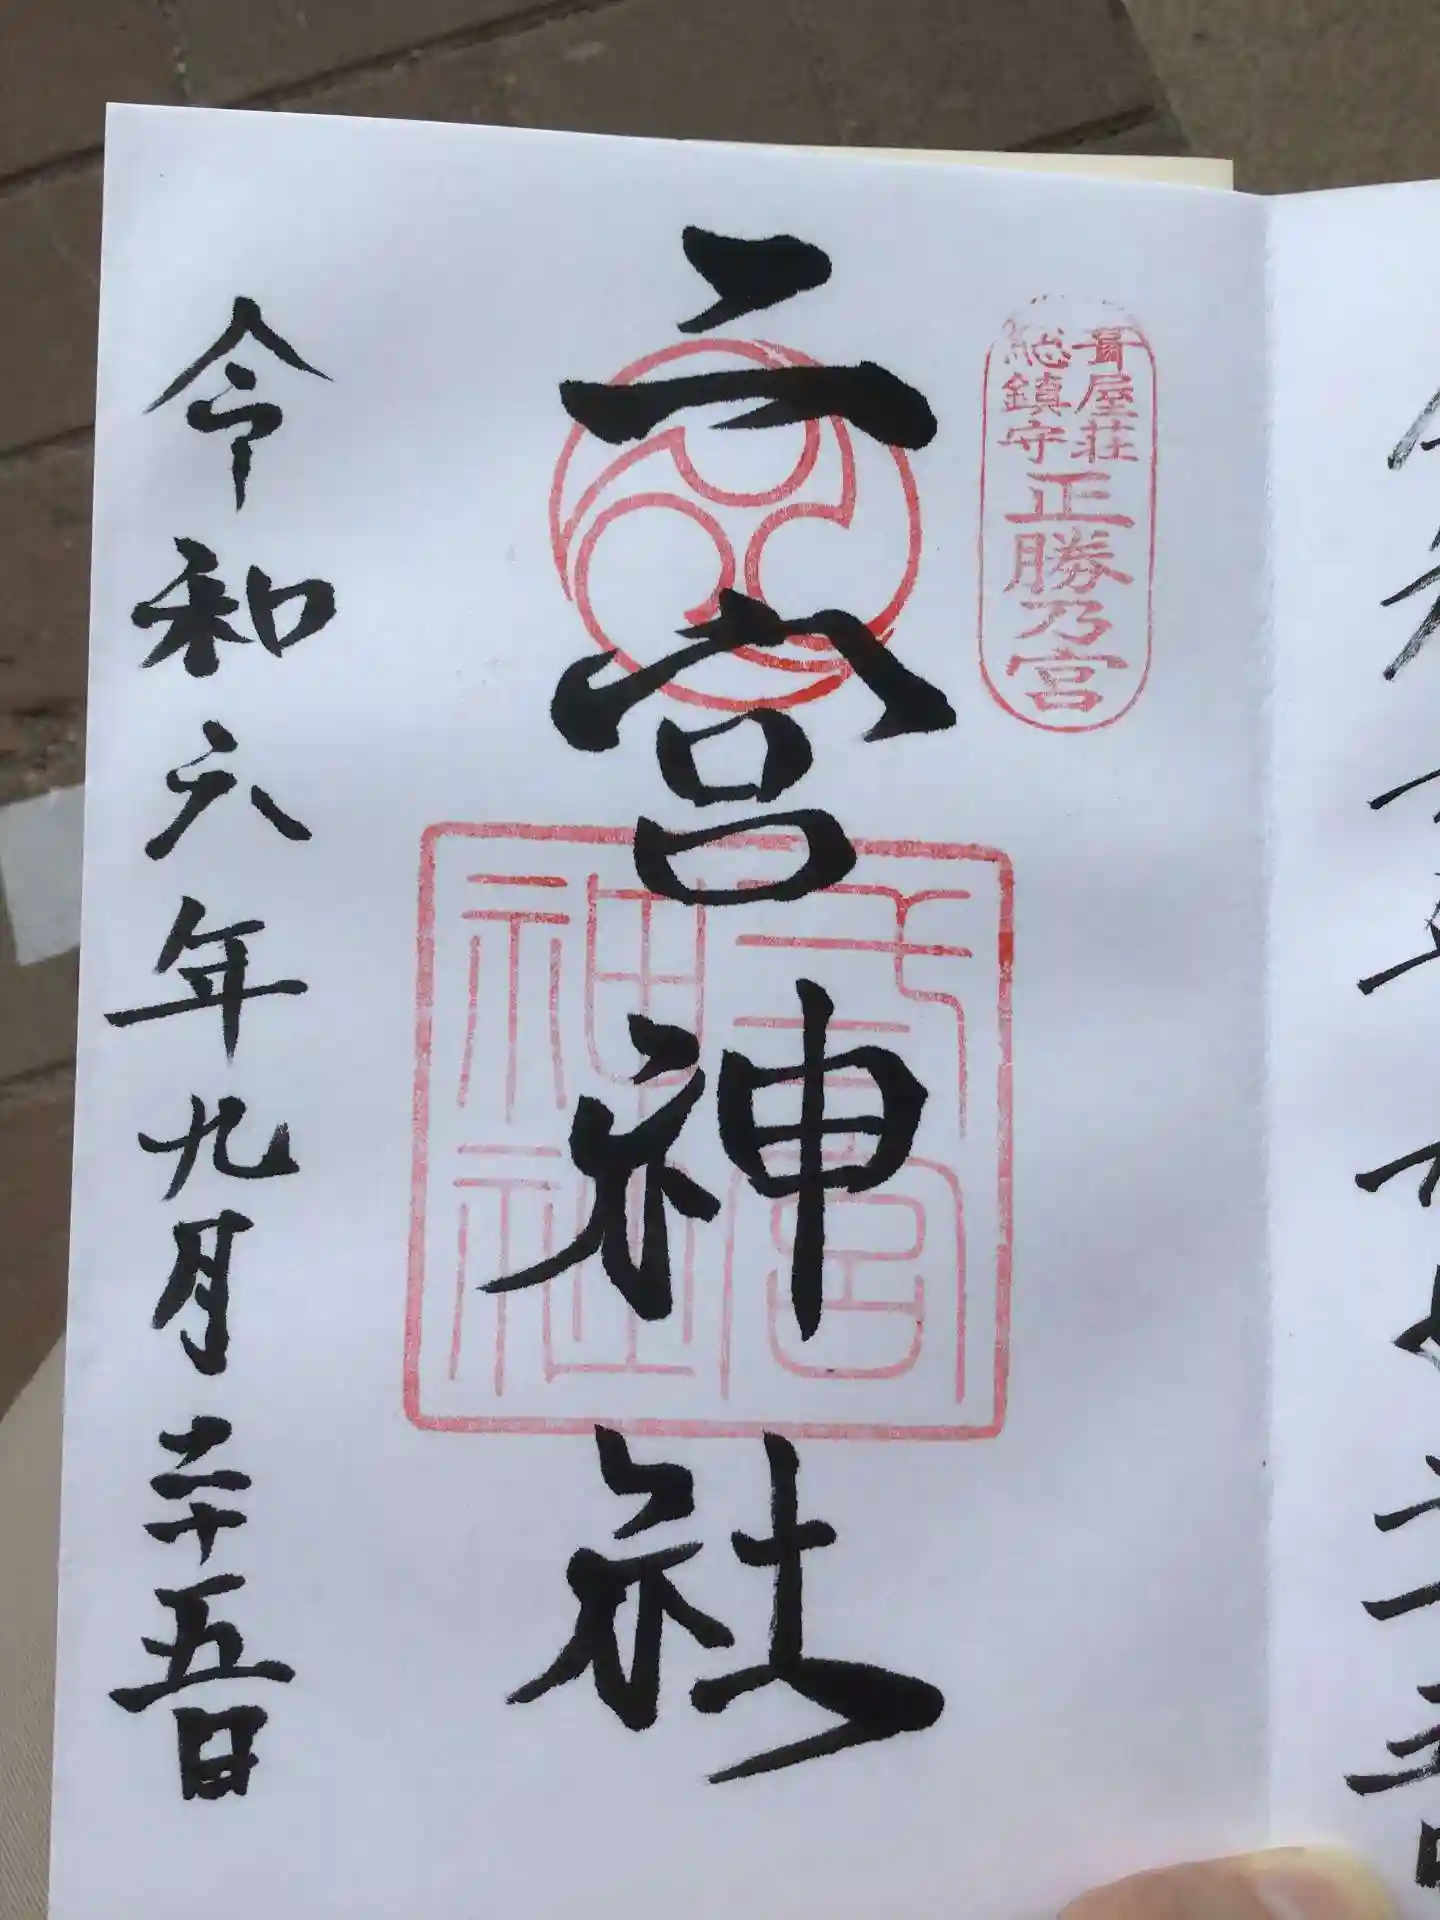 葺屋荘
総鎮守
正勝乃宮
二宮神社
弍宮
神社
令和六年九月二十五日